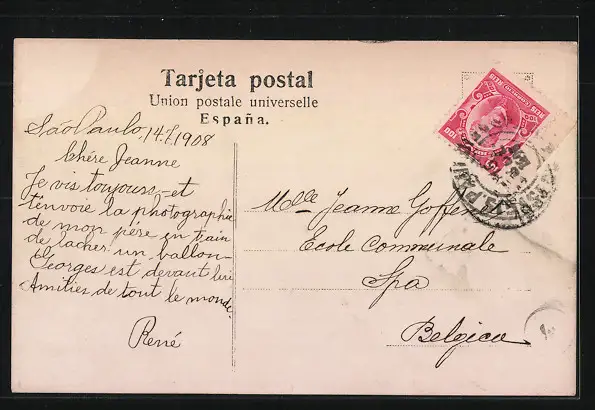 Tarjeta postal
Union postale universelle
España.
São Paulo, 14.7.1908
Chére Jeanne
Je vis toujours et
t'envoie la photographie
de mon père en train
de lacher un ballon
Georges est devant lui
Amitiés de tout le monde.
René
Mlle Jeanne Goffin
Ecole Communale
Spa
Belgica
100
REIS
CORREIO